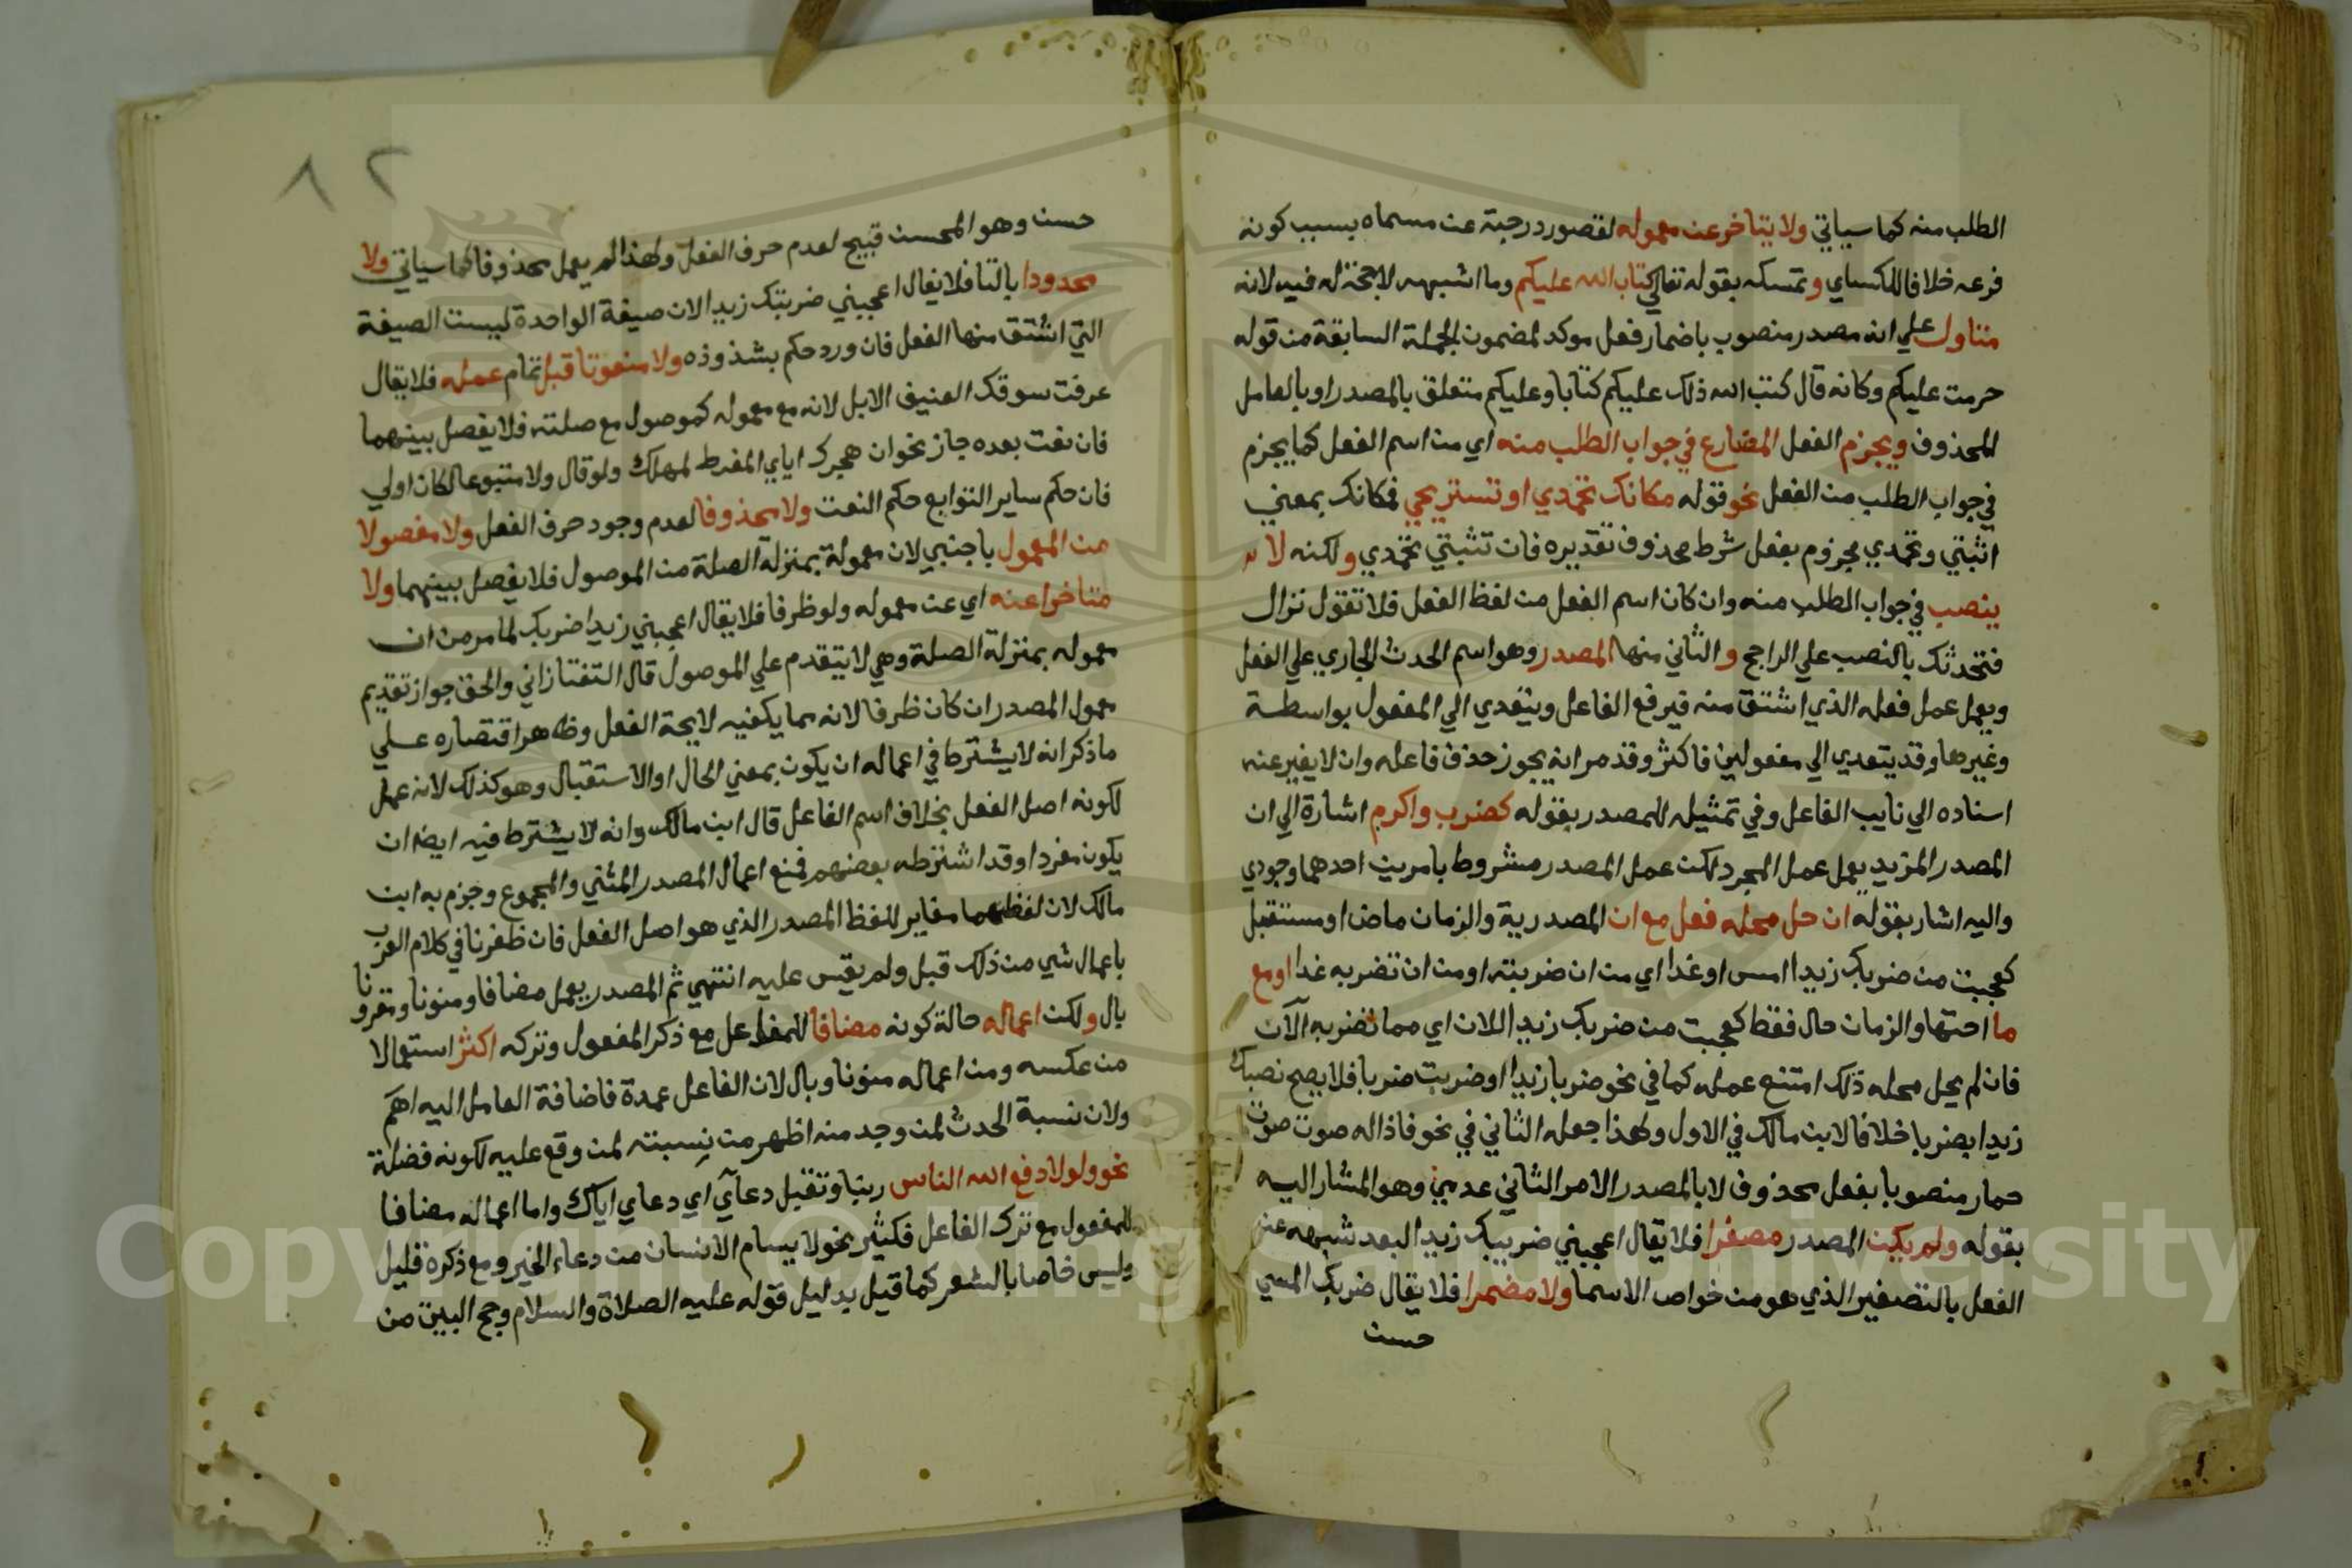 الطلب منه كما سياتي ولا يتاخر عن معموله لقصور درجته عن مسماه بسبب كونه
فرعه خلافا للكساي وتمسكه بقوله تعالي كتاب الله عليكم وما اشبهه لا حجة له فيه لانه
متاول علي انه مصدر منصوب باضمار فعل موكد لمضمون الجملة السابقة من قوله
حرمت عليكم وكانه قال كتب الله ذلك عليكم كتابا وعليكم متعلق بالمصدر او بالعامل
المحذوف ويجزم الفعل المضارع في جواب الطلب منه اي من اسم الفعل كما يجزم
في جواب الطلب من الفعل نحو قوله مكانك تحمدي او تستريحي فمكانك بمعني
اثبتي وتحمدي مجزوم بفعل شرط محذوف تقديره فان تثبتي تحمدي ولكنه لا
ينصب في جواب الطلب منه وان كان اسم الفعل من لفظ الفعل فلا تقول نزال
فتحدثك بالنصب علي الراجح والثاني منها المصدر وهو اسم الحدث الجاري علي الفعل
ويعمل عمل فعله الذي اشتق منه فيرفع الفاعل ويتعدي الي المفعول بواسطة
وغيرها وقد يتعدي الي مفعولين فاكثر وقد مر انه يجوز حذف فاعله وان لا يغير عنه
اسناده الي نايب الفاعل وفي تمثيله للمصدر بقوله كضرب واكرم اشارة الي ان
المصدر المزيد يعمل عمل المجرد لكن عمل المصدر مشروط بامرين احدهما وجودي
واليه اشار بقوله ان حل محله فعل مع ان المصدرية والزمان ماض او مستقبل
كعجبت من ضربك زيدا امس او غدا اي من ان ضربته او من ان تضربه غدا او مع
ما اختها والزمان حال فقط كعجبت من ضربك زيدا الان اي مما تضربه الآن
فان لم يحل محله ذلك امتنع عمله كما في نحو ضربا زيدا او ضربت ضربا فلا يصح نصبك
زيدا بضربا خلافا لابن مالك في الاول ولهذا جعله الثاني في نحو فاذا له صوت صوت
حمار منصوبا بفعل محذوف لا بالمصدر الامر الثاني عدمي وهو المشار اليه
بقوله ولم يكن المصدر مصغرا فلا يقال اعجبني ضريبك زيدا لبعد شبهه عن
الفعل بالتصغير الذي هو من خواص الاسما ولا مضمرا فلا يقال ضربك المسي
حسن
٨٢
حسن وهو المحسن قبيح لعدم حرف الفعل ولهذا لم يعمل محذوفا كما سياتي ولا
محدودا بالتا فلا يقال اعجبني ضربتك زيدا لان صيغة الواحدة ليست الصيغة
التي اشتق منها الفعل فان ورد حكم بشذوذه ولا منعوتا قبل تمام عمله فلا يقال
عرفت سوقك العنيف الابل لانه مع معموله كموصول مع صلته فلا يفصل بينهما
فان نعت بعده جاز نحو ان هجرك اياي المفرط لمهلك ولو قال ولا متبوعا لكان اولي
فان حكم ساير التوابع حكم النعت ولا محذوفا لعدم وجود حرف الفعل ولا مفصولا
من المعمول باجنبي لان معموله بمنزلة الصلة من الموصول فلا يفصل بينهما ولا
متاخرا عنه اي عن معموله ولو ظرفا فلا يقال اعجبني زيدا ضربك لما مر من ان
معموله بمنزلة الصلة وهي لا يتقدم علي الموصول قال التفتازاني والحق جواز تقديم
معمول المصدر ان كان ظرفا لانه مما يكفيه لايحة الفعل وظاهر اقتصاره علي
ما ذكر انه لا يشترط في اعماله ان يكون بمعني الحال او الاستقبال وهو كذلك لانه عمل
لكونه اصل الفعل بخلاف اسم الفاعل قال ابن مالك وانه لا يشترط فيه ايضا ان
يكون مفردا وقد اشترطه بعضهم فمنع اعمال المصدر المثني والمجموع وجزم به ابن
مالك لان لفظهما مغاير للفظ المصدر الذي هو اصل الفعل فان ظفرنا في كلام العرب
باعمال شي من ذلك قبل ولم يقس عليه انتهي ثم المصدر يعمل مضافا ومنونا ومقرونا
بال ولكن اعماله حالة كونه مضافا للفاعل مع ذكر المفعول وتركه اكثر استعمالا
من عكسه ومن اعماله منونا وبال لان الفاعل عمدة فاضافة العامل اليه اهم
ولان نسبة الحدث لمن وجد منه اظهر من نسبته لمن وقع عليه لكونه فضلة
نحو ولولا دفع الله الناس ربنا وتقبل دعآي اي دعاي اياك واما اعماله مضافا
للمفعول مع ترك الفاعل فكثير نحو لا يسام الانسان من دعاء الخير ومع ذكره قليل
وليس خاصا بالشعر كما قيل بدليل قوله عليه الصلاة والسلام وحج البيت من
Copyright © King Saud University